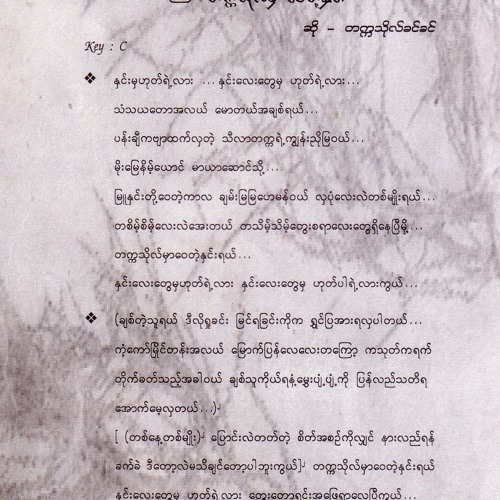 ဆို – တက္ကသိုလ်ခင်ခင်
Key : C
❖ နှင်းမှဟုတ်ရဲ့လား ... နှင်းလေးတွေမှ ဟုတ်ရဲ့လား...
သံသယတောအလယ် မောတယ်အချစ်ရယ်...
ပန်းချီကဗျာထက်လှတဲ့ သီလာတက္ကရဲ့ကျွန်းညိုမြဝယ်...
မိုးမြေနိမ့်ယောင် မာယာဆောင်သို့...
မြူနှင်းတို့ဝေတဲ့ကာလ ချမ်းမြမြဟေမန်ဝယ် လှပုံလေးလဲတစ်မျိုးရယ်...
တစိမ့်စိမ့်လေးလဲအေးတယ် တသိမ့်သိမ့်တွေးစရာလေးတွေရှိနေပြီမို့...
တက္ကသိုလ်မှာဝေတဲ့နှင်းရယ်...
နှင်းလေးတွေမှဟုတ်ရဲ့လား နှင်းလေးတွေမှ ဟုတ်ပါရဲ့လားကွယ်...
❖ (ချစ်တဲ့သူရယ် ဒီလိုရှုခင်း မြင်ရခြင်းကိုက ရွှင်ပြအားရလှပါတယ်...
ကံ့ကော်မြိုင်တန်းအလယ် မြောက်ပြန်လေလေးတကြော့ ကသုတ်ကရက်
တိုက်ခတ်သည့်အခါဝယ် ချစ်သူကိုယ်ရနံ့မွှေးပျံ့ပျံ့ကို ပြန်လည်သတိရ
အောက်မေ့လှတယ်...)၂
[ (တစ်နေ့တစ်မျိုး)၂ ပြောင်းလဲတတ်တဲ့ စိတ်အစဉ်ကိုလျှင် နားလည်ရန်
ခက်ခဲ ဒီတော့လဲမသိချင်တော့ပါဘူးကွယ်]၂ တက္ကသိုလ်မှာဝေတဲ့နှင်းရယ်
နှင်းလေးတွေမှ ဟုတ်ရဲ့လား တွေးတောရင်းအဖြေရှာလေပြီကွယ်...